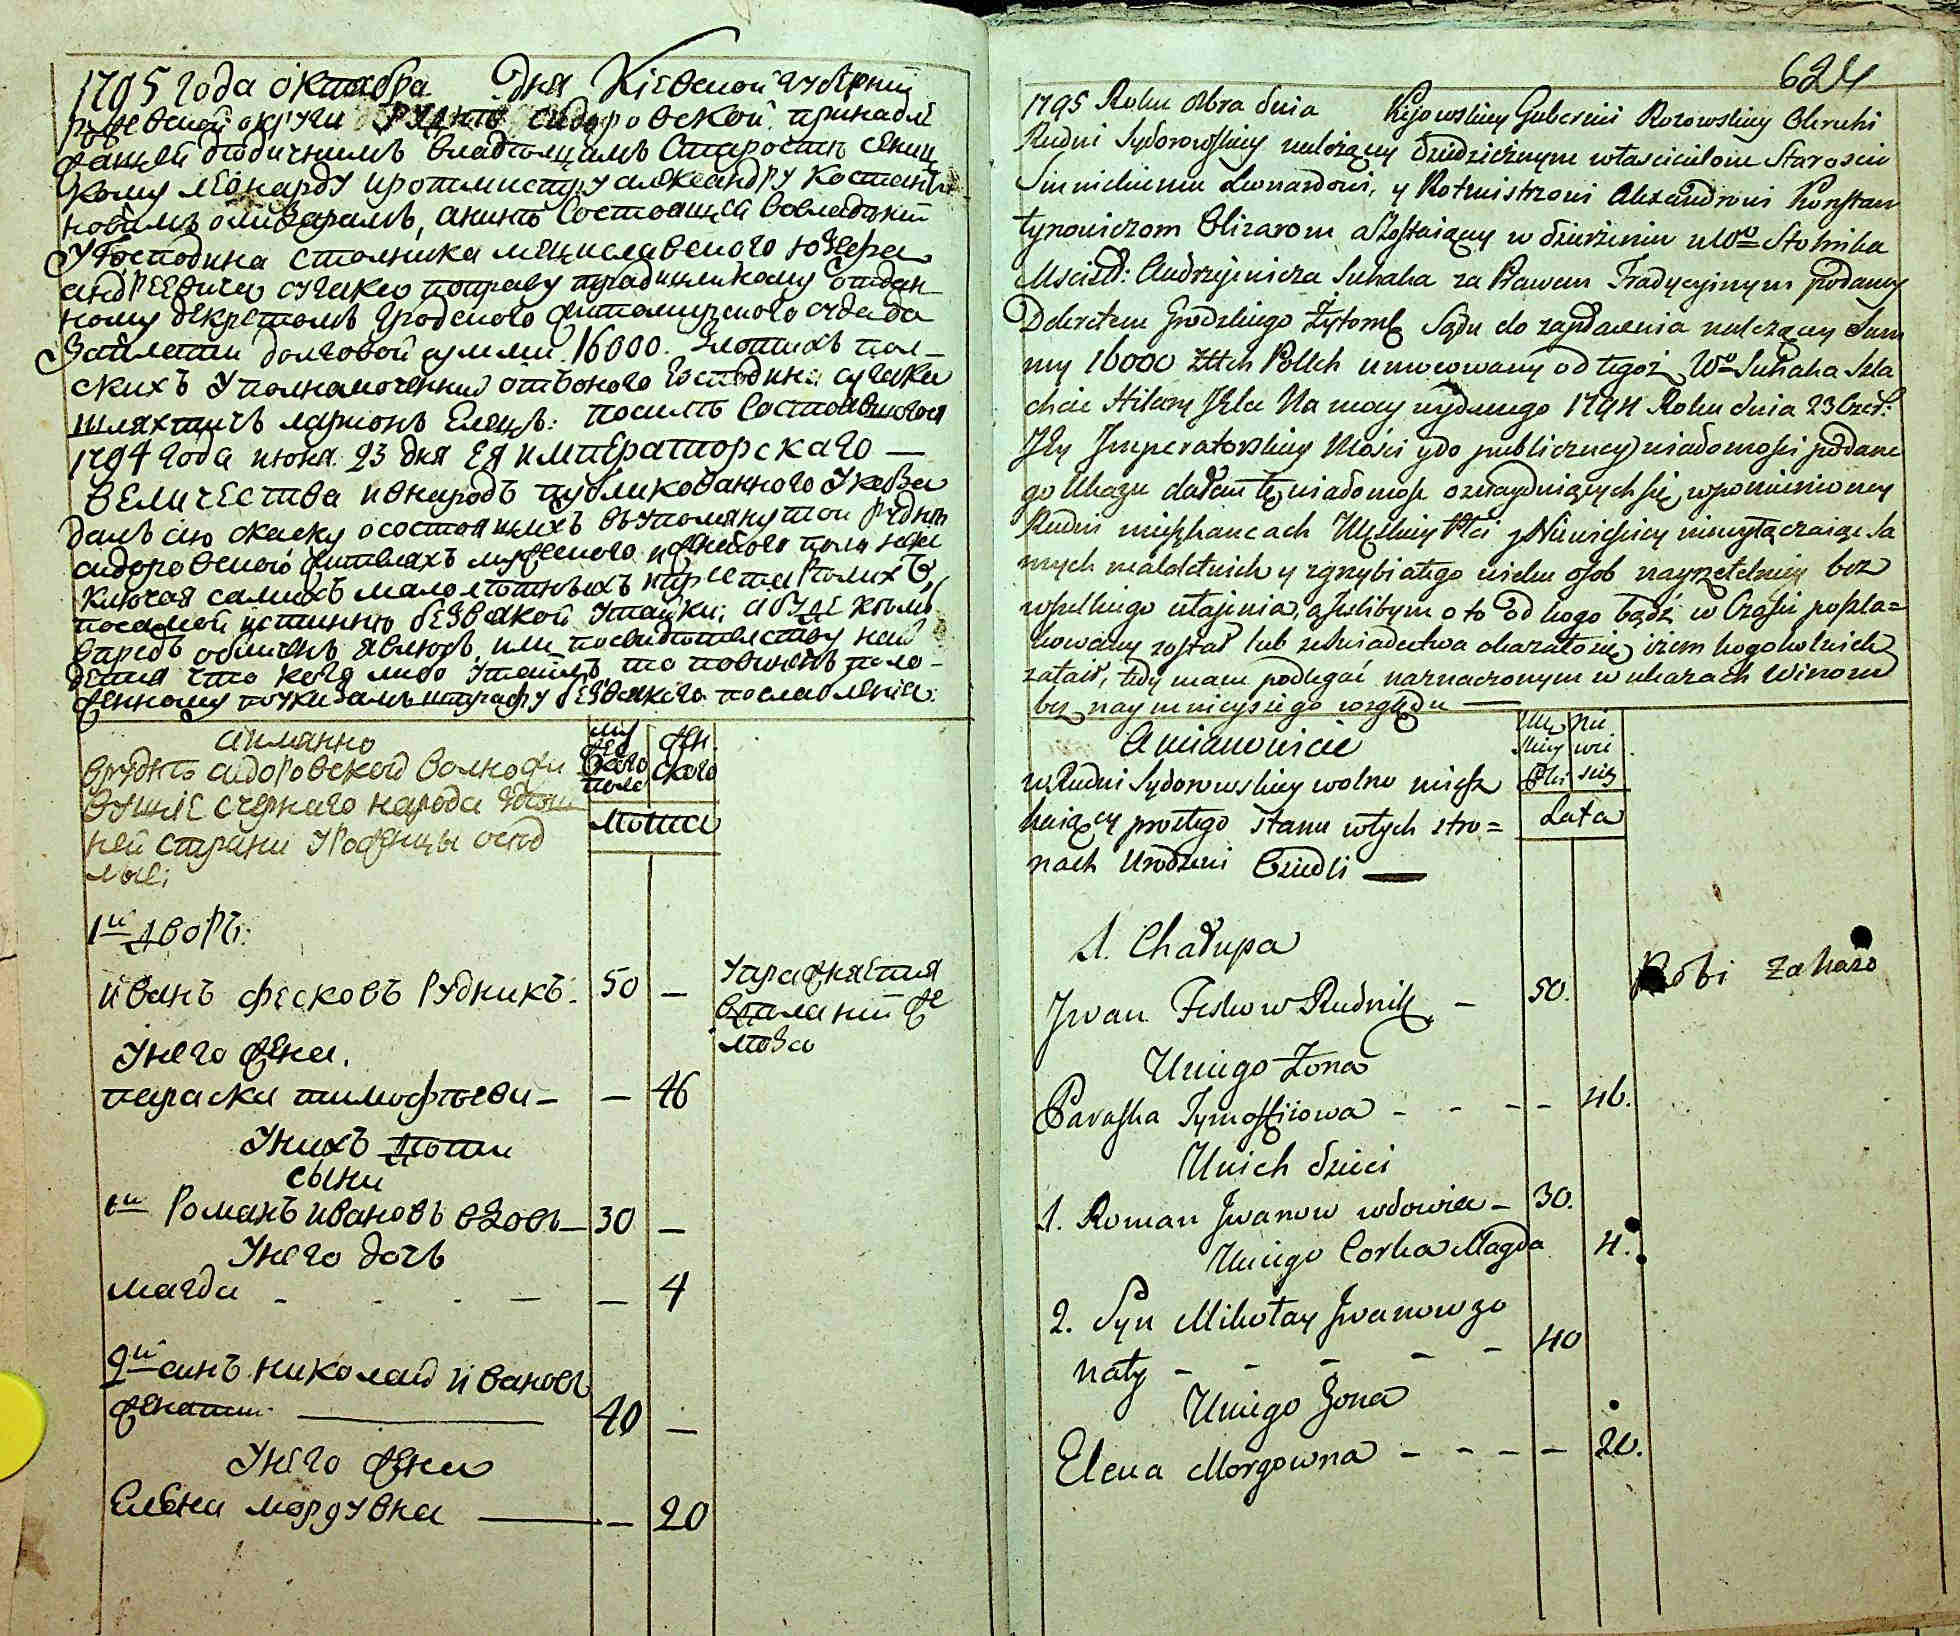 1795 года октября дня Кіевской губерніи
округи Рудни Сидоровской принадле
жащей дѣдичнымъ владѣльцамъ Старостѣ Сениц
кому леонарду иротмистру александру Костанти
новымъ олизарамъ, анинѣ Состоящей вовладѣніи
У Господина столника мсциславского юзефа
андреевича сугака поправу традицийному отдан
ному декретомъ гродского житомирского суда до
Заплати долговой суммы 16000. злотихъ пол-
скихъ Уполномоченный отъоного Господина сугака
шляхтичъ ларионъ Елецъ: посилѣ Состоявшегося
1794 года июня 23 дня Ея императорскаго —
величества ивнародъ публикованного Указа
далъ сію скаску осостоящихъ въупомянутои рудни
сидоровской жителяхъ мужеского иженского пола
ключая самихъ малолѣтныхъ ипрестарѣлихъ
посамой истиннѣ безвсякой Утайки; абуде кѣмъ
впредъ обличенъ явлюсь, или посвидѣтелству най
дется что кого либо Утаилъ то повиненъ поло-
женному поуказамъ штрафу безвсякого послабленія:
аимянно
врудпѣ сидоровской волножи
вущіе счернаго народа
ней страни Урожнцы осѣд
лые:
му
жес
кого
пола
жен.
ского
лѣта
1й дворъ:
иванъ фесковъ рудникъ. 50 —
Упражняется
вделаніи же
леза
Унего жена.
параска тимофѣева — — 46
Унихъ дѣти
сыни
1й Романъ ивановъ вдовъ — 30 —
Унего дочъ
магда - - - — — 4
2й синъ николай ивановъ
женати. — 40 —
Унего жена
Елена моргувна — — 20
624
1795 Roku 8bra dnia Kijowskiey Gubernii Rozowskiey Okruhi
Rudni Sydorowskiey nalezącey dziedzicznym włascicielom Staroscie
Sienickiemu Leonardowi, y Rotmistrzowi Alexandrowi Konstan
tynowiczom Olizarom a Zostaiącey w dzierzeniu u Wo Stolnika
Mscisł: Andrzejewicza Suhaka za Prawem Tradycyinym podaney
Dekretem Grodzkiego Żytomł Sądu do zapłacenia nalezącey Sum
my 16000 Złtch Polch umocowany od tegoż Wo Suhaka Szla
chcic Hilary Jelec Na mocy wydanego 1794 Roku dnia 23
Jey Imperatorskiey Mości y do publiczney wiadomości podane
go Ukazu dałem tę wiadomość o znayduiących się wpomienioney
Rudni mieszkancach Męskiey Płci y Niewiesciey niewyłączaiąc sa
mych maloletnich y zgrzybiałego wieku osob nayrzetelniey bez
wszelkiego utajenia, a jeslibym o to od kogo bądź w Czasie poszla=
kowany został lub zeświadectwa okazałosię iżem kogokolwiek
zataił, tedy mam podlegać naznaczonym w ukazach Winom
bez naymnieyszego względu —
A mianowicie
w Rudni Sydorowskiey wolno miesz
kaiący prostego stanu wtych stro=
nach Urodzeni Osiedli —
Mę
skiey
Płci
nie
wie
sciey
Lata
1. Chałupa
Jwan Feskow Rudnik — 50.
Robi żelazo
Uniego Żona
Paraska Tymosziiowa - - - — 46.
Unich dzieci
1. Roman Jwanow wdowiec — 30.
Uniego Corka Magda 4.
2. Syn Mikołay Jwanow żo
naty - - - - — 40
Uniego Żona
Elena Morgowna - - - — 20.